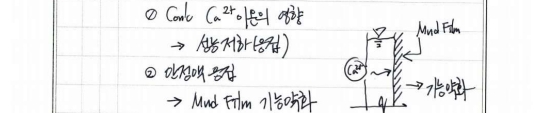 ① Conc Ca²⁺ 이온의 영향
→ 성능저하(응집)
② 안정액 응집
→ Mud Film 기능약화
Mud Film
Ca²⁺
→ 기능약화